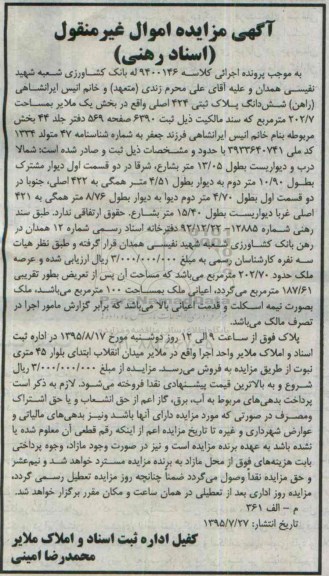 آگهی مزایده اموال غیرمنقول
(اسناد رهنی)
به موجب پرونده اجرائی کلاسه ۹۴۰۰۱۴۶ له بانک کشاورزی شعبه شهید
نفیسی همدان و علیه آقای علی محرم زندی (متعهد) و خانم انیس ایرانشاهی
(راهن) شش‌دانگ پلاک ثبتی ۴۲۴ اصلی واقع در بخش یک ملایر بمساحت
۲۰۲/۷ مترمربع که سند مالکیت ذیل ثبت ۶۳۹۰ صفحه ۵۶۹ دفتر جلد ۴۴ بخش
مربوطه بنام خانم انیس ایرانشاهی فرزند جعفر به شماره شناسنامه ۴۷ متولد ۱۳۳۴
کد ملی ۳۹۳۳۶۴۰۷۴۱ با حدود و مشخصات ذیل ثبت و صادر شده است: شمالا
درب و دیواریست بطول ۱۳/۰۵ متر بشارع، شرقا در دو قسمت اول دیوار مشترک
بطول ۱۰/۹۰ متر دوم به دیوار بطول ۴/۵۱ متر همگی به ۴۲۲ اصلی، جنوبا در
دو قسمت اول بطول ۴/۷۰ متر دوم دیوا به دیوار بطول ۸/۷۶ متر همگی به ۴۲۱
اصلی غربا دیواریست بطول ۱۵/۴۰ متر بشارع. حقوق ارتفاقی ندارد. طبق سند
رهنی شماره ۱۲۸۸۵– ۹۲/۱۲/۲۲ دفترخانه اسناد رسمی شماره ۱۲ همدان در
رهن بانک کشاورزی شعبه شهید نفیسی همدان قرار گرفته و طبق نظر هیات
سه نفره کارشناسان رسمی به مبلغ ۳/۰۰۰/۰۰۰/۰۰۰ ریال ارزیابی شده و عرصه
ملک حدود ۲۰۲/۷۰ مترمربع می‌باشد که مساحت آن پس از تعریض بطور تقریبی
۱۸۷/۶۱ مترمربع می‌گردد، اعیانی ملک بمساحت ۱۰۰ مترمربع می‌باشد، ملک
بصورت نیمه اسکلت و قدمت اعیانی بالا می‌باشد که برابر گزارش مامور اجرا در
تصرف مالک می‌باشد.
پلاک فوق از ساعت ۹ الی ۱۲ روز دوشنبه مورخ ۱۳۹۵/۸/۱۷ در اداره ثبت
اسناد و املاک ملایر واحد اجرا واقع در ملایر میدان انقلاب ابتدای بلوار ۴۵ متری
نبوت از طریق مزایده به فروش می‌رسد. مزایده از مبلغ ۳/۰۰۰/۰۰۰/۰۰۰ ریال
شروع و به بالاترین قیمت پیشنهادی نقدا فروخته می‌شود. لازم به ذکر است
پرداخت بدهی‌های مربوط به آب، برق، گاز اعم از حق انشعاب و یا حق اشتراک
ومصرف در صورتی که مورد مزایده دارای آنها باشد ونیز بدهی‌های مالیاتی و
عوارض شهرداری و غیره تا تاریخ مزایده اعم از اینکه رقم قطعی آن معلوم شده یا
نشده باشد به عهده برنده مزایده است و نیز در صورت وجود مازاد، وجوه پرداختی
بابت هزینه‌های فوق از محل مازاد به برنده مزایده مسترد خواهد شد و نیم‌عشر
و حق مزایده نقدا وصول می‌گردد ضمنا چنانچه روز مزایده تعطیل رسمی گردد،
مزایده روز اداری بعد از تعطیلی در همان ساعت و مکان مقرر برگزار خواهد شد.
م – الف ۳۶۱
تاریخ انتشار: ۱۳۹۵/۷/۲۷
کفیل اداره ثبت اسناد و املاک ملایر
محمدرضا امینی